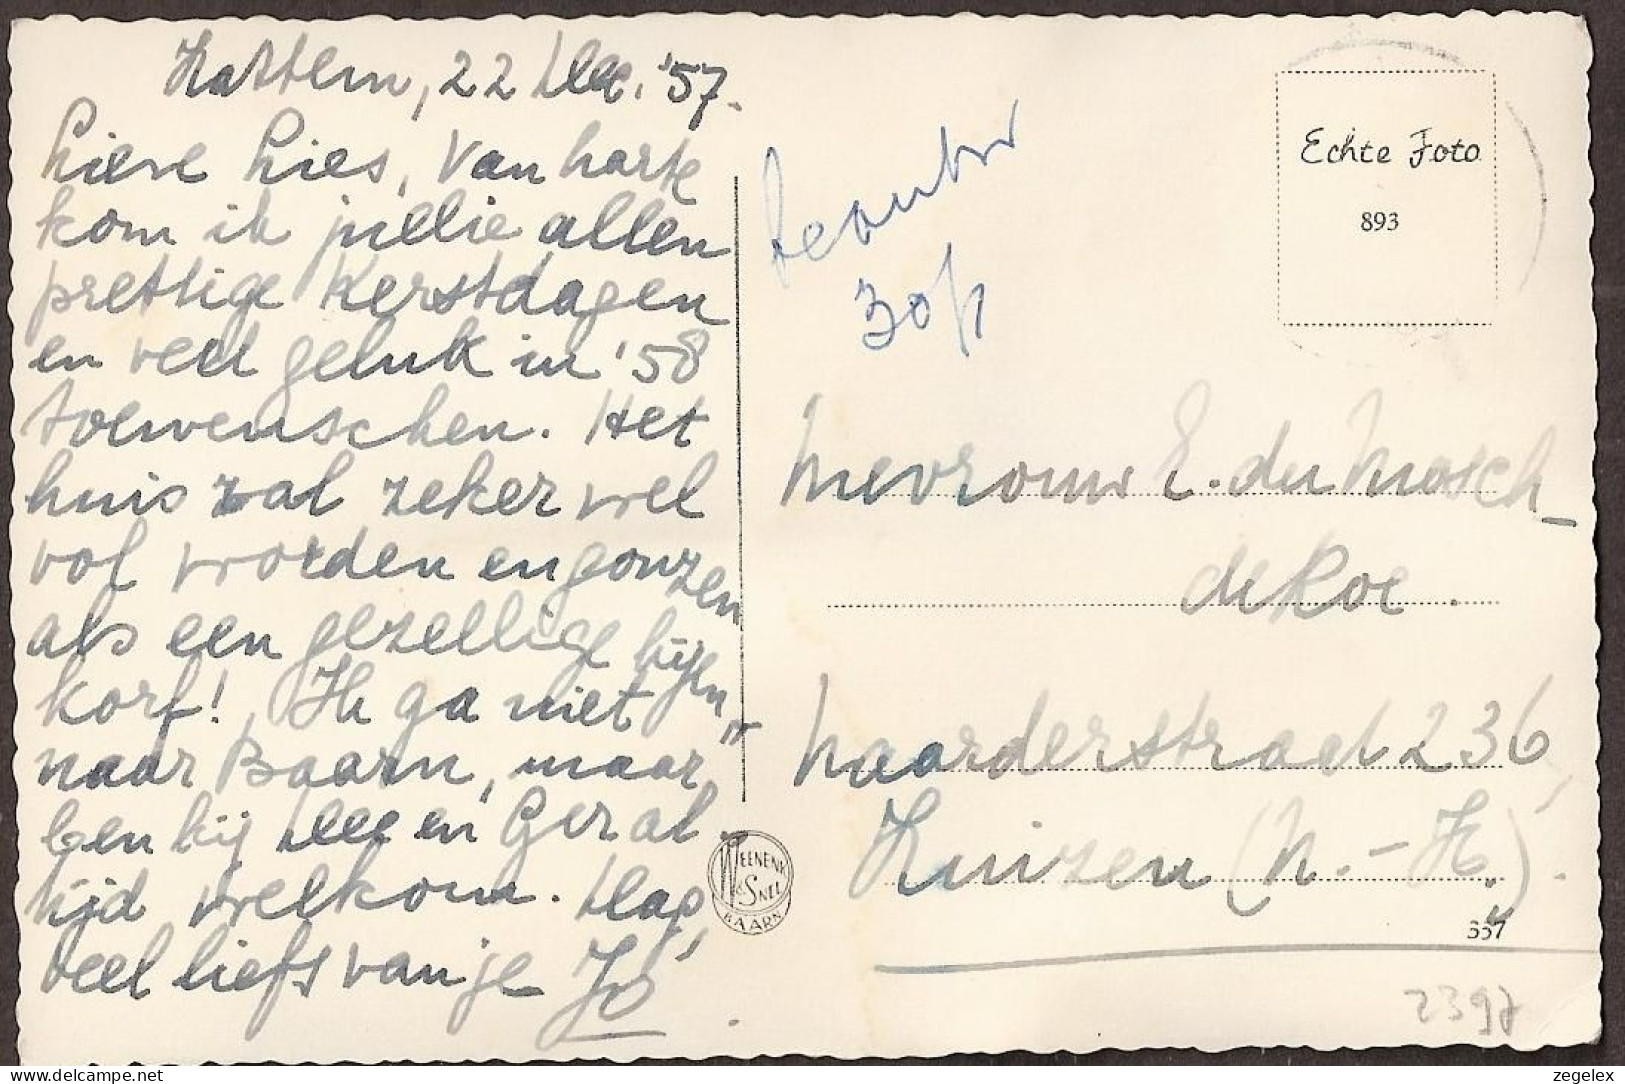 Hattem, 22 Dec. '57.
Lieve Lies, Van harte
kom ik jullie allen
prettige Kerstdagen
en veel geluk in '58
toewenschen. Het
huis zal zeker wel
vol worden en gonzen
als een gezellige bijen
korf! Ik ga niet
naar Baarn, maar
ben bij Dee en Ger al
tijd welkom. Dag,
veel liefs van je Jo
30
Echte Foto
893
Mevrouw E. du Mosch-
de Roe.
Naarderstraat 236,
Huizen (N.-H.).
VEENENK
& SNEL
BAARN
337
2397
zegelex